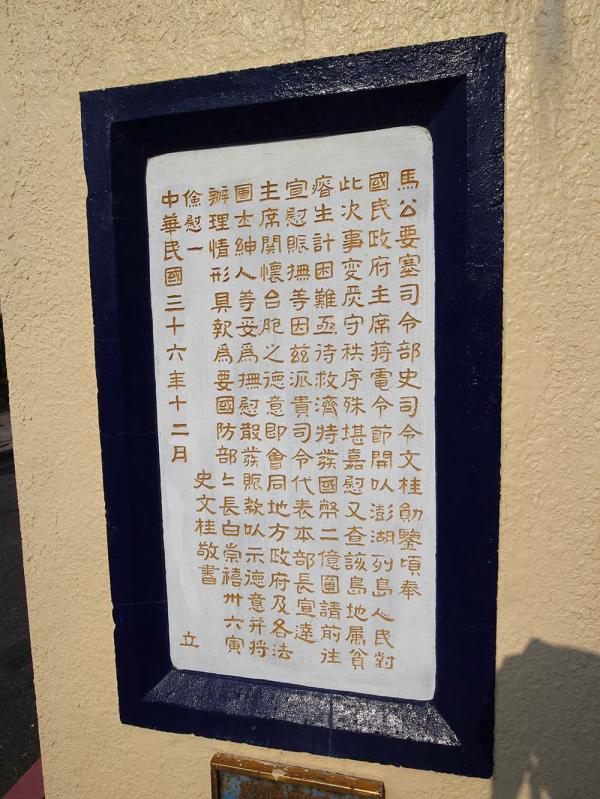 馬公要塞司令部史司令文桂勛鑒頃奉
國民政府主席蔣電令節開以澎湖列島人民對
此次事变戾守秩序殊堪嘉慰又查該島地属貧
瘠生計困難亟待救濟特蕟國幣二億圓請前往
宣慰賑撫等因兹派貴司令代表本部長宣達
主席関懷台胞之德意即會同地方政府及各法
團士紳人等妥為撫慰散蕟賑款以示德意并将
辦理情形具報為要國防部部長白崇禧卅六寅
儉慰一
史文桂敬書
中華民國三十六年十二月 立